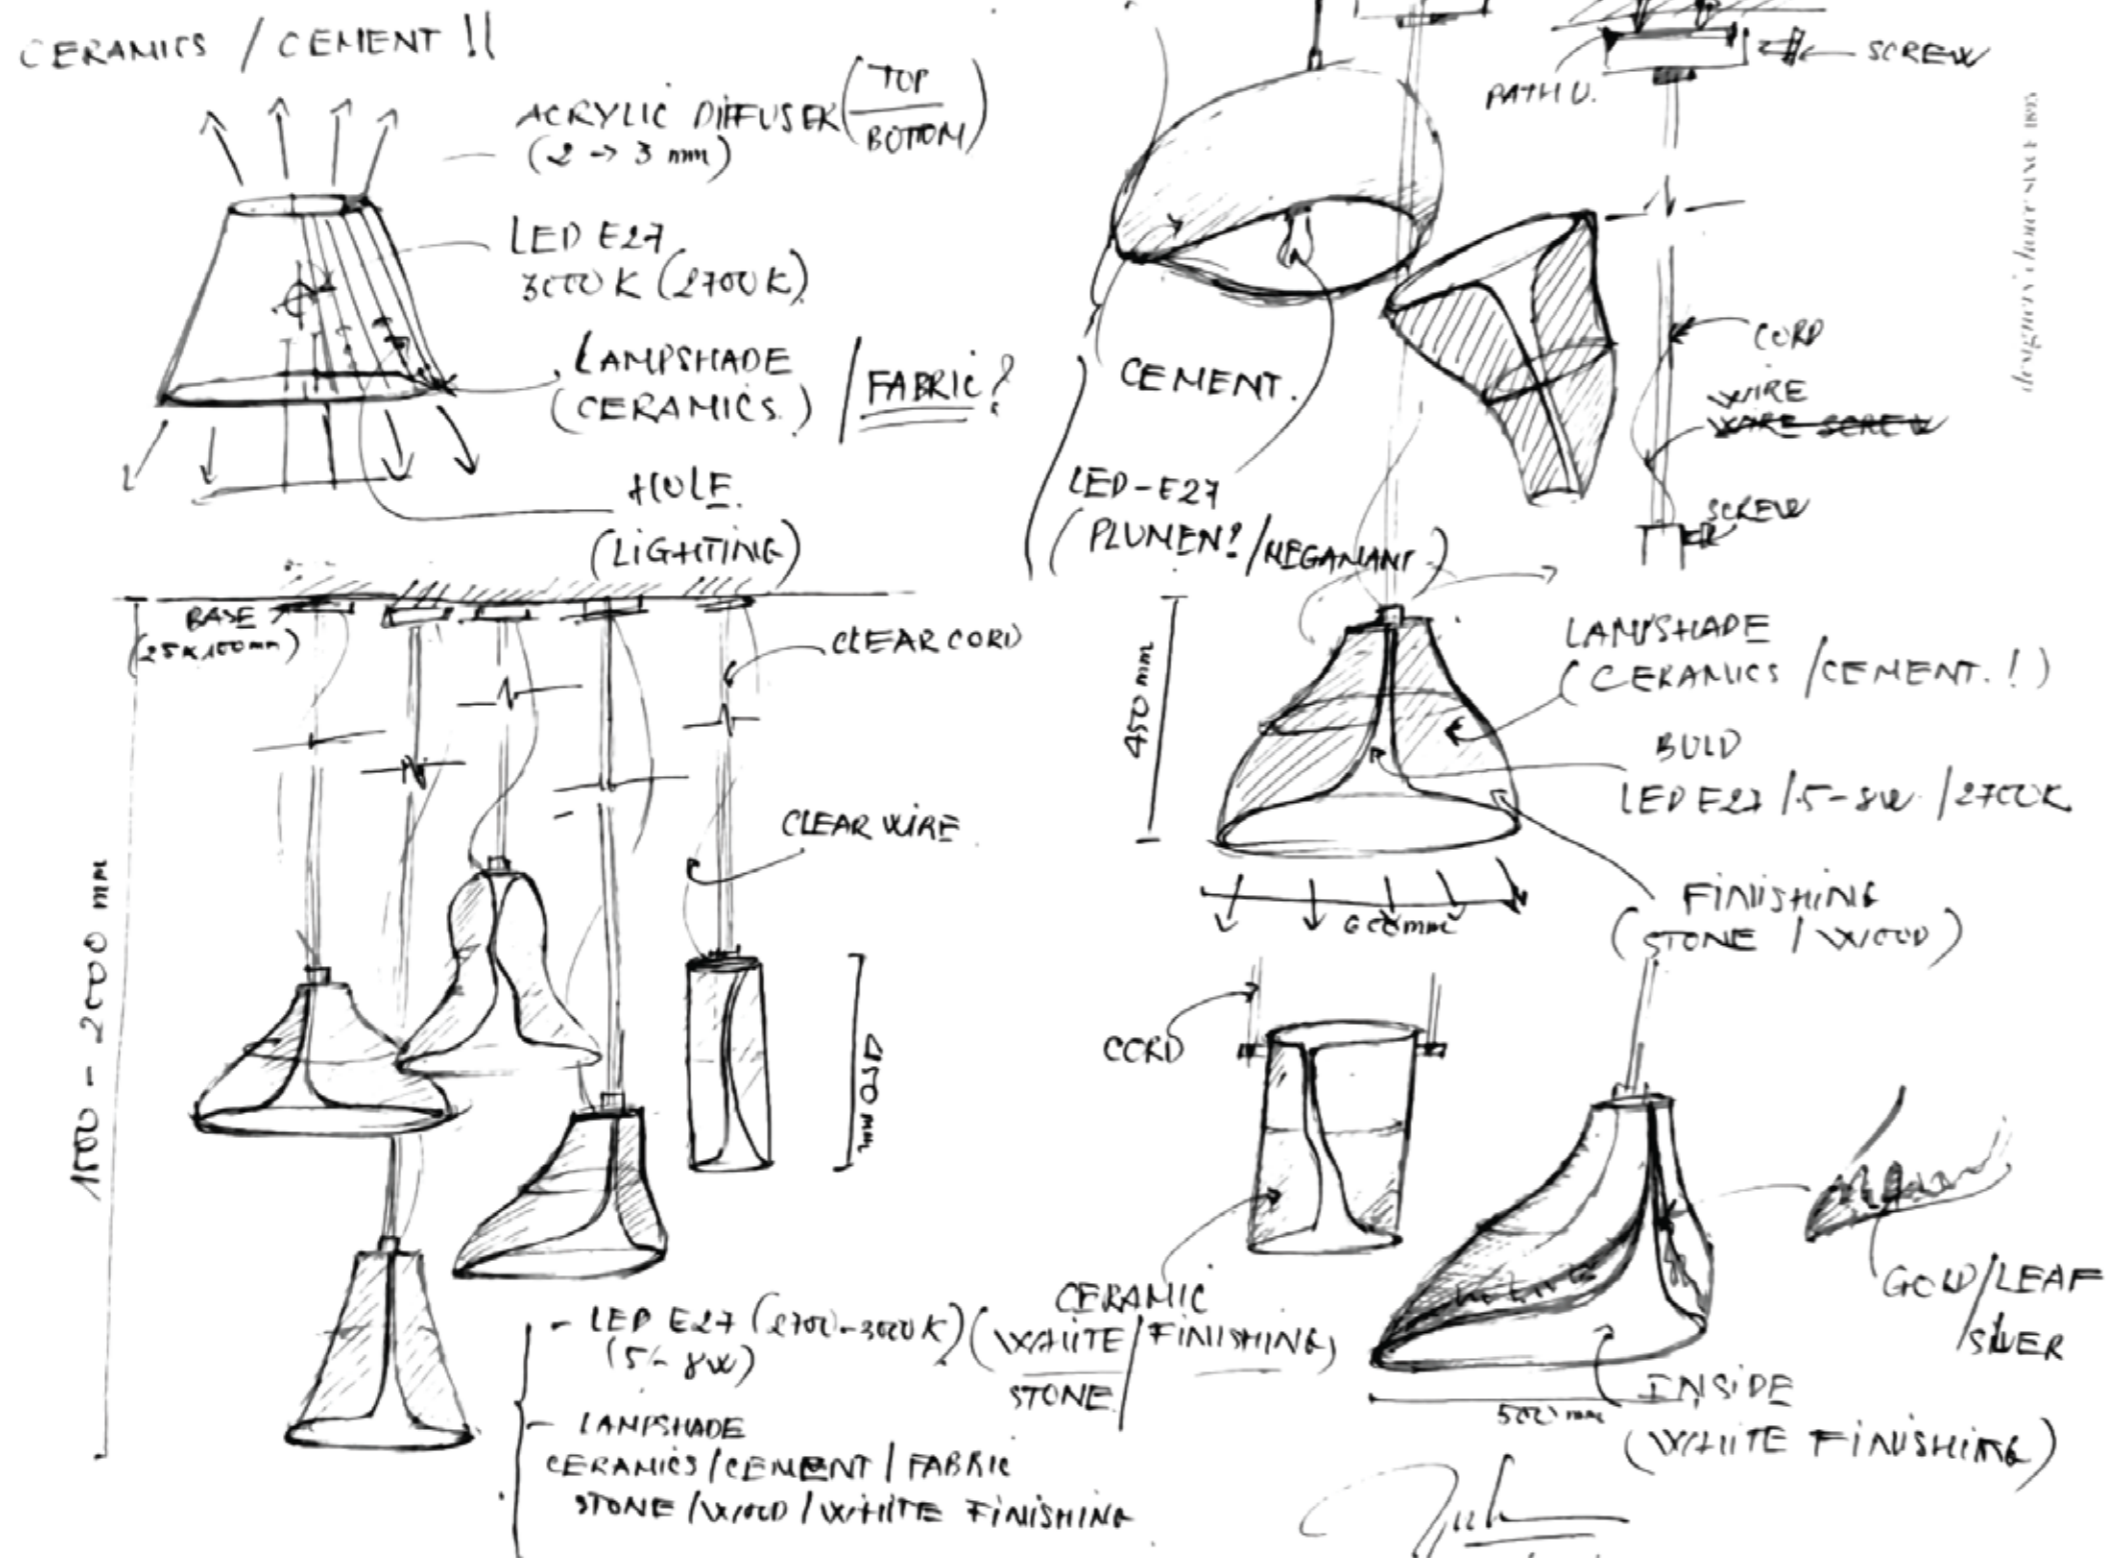 CERAMICS / CEMENT !!
ACRYLIC DIFFUSER (TOP / BOTTOM)
(2 → 3 mm)
LED E27
3000 K (2700 K)
LAMPSHADE
(CERAMICS.) / FABRIC?
HOLE.
(LIGHTING)
BASE
(25 x 100 mm)
CLEAR CORD
CLEAR WIRE
1500 - 2000 mm
450 mm
- LED E27 (2700-3000 K)
(5 - 8W)
- LAMPSHADE
CERAMICS / CEMENT / FABRIC
STONE / WOOD / WHITE FINISHING
SCREW
PATH U.
CORD
WIRE
WIRE SCREW
SCREW
CEMENT.
LED-E27
(PLUMEN? / MEGAMAN?)
450 mm
LAMPSHADE
(CERAMICS / CEMENT. !)
BULD
LED E27 / 5-8W / 2700K
FINISHING
(STONE / WOOD)
600 mm
CORD
CERAMIC
(WHITE / FINISHING)
STONE
GOLD / LEAF
/ SILVER
500 mm
INSIDE
(WHITE FINISHING)